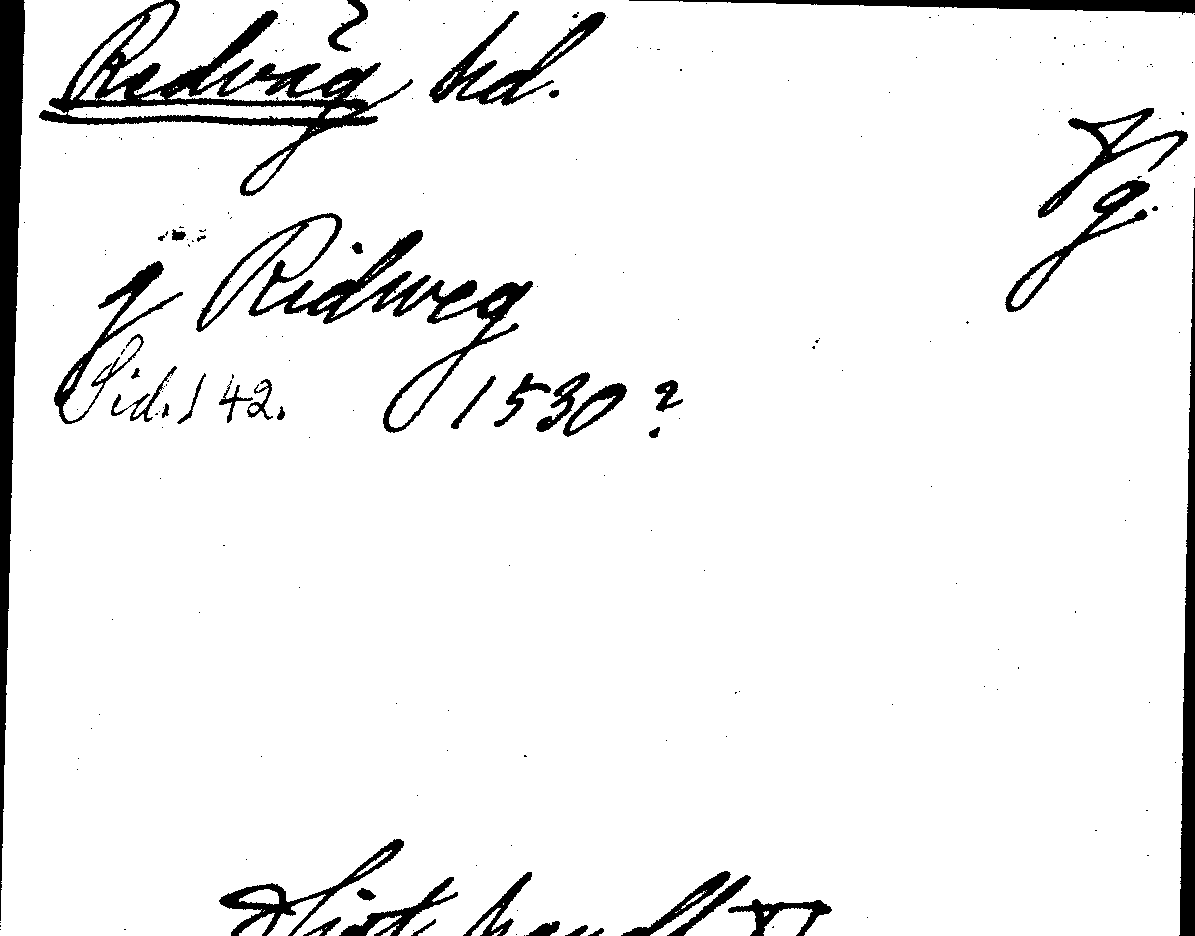 Redvåg hd.
Vg.
j Ridweg
Sid. 142. 1530?
Hist. handl XI